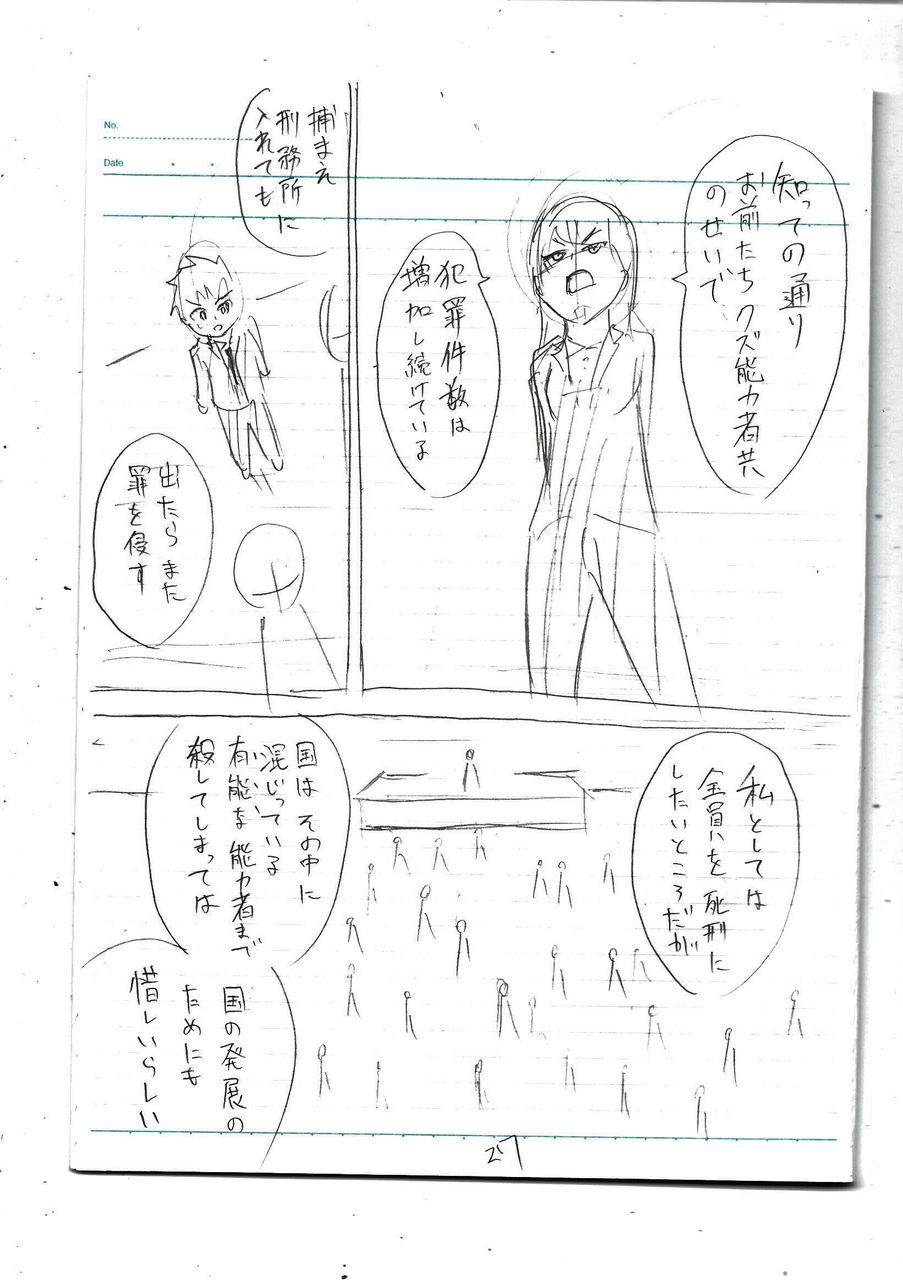 No.
Date
知っての通り
お前たちクズ能力者共
のせいで、
犯罪件数は
増加し続けている
捕まえ
刑務所に
入れても
出たら また
罪を侵す
私としては
全員を死刑に
したいところだが
国はその中に
混じっている
有能な能力者まで
殺してしまっては
国の発展の
ためにも
惜しいらしい
27